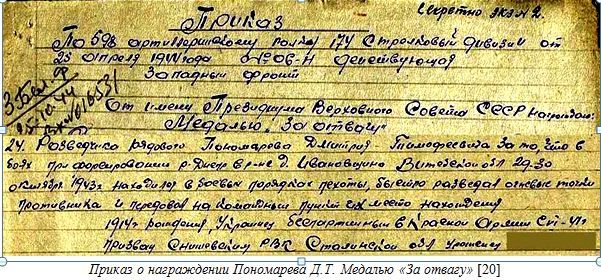 Секретно экз № 2.
Приказ
По 598 артиллерийскому полку 174 Стрелковой дивизии от
25 апреля 1944 года № 06-Н действующая
Западный фронт
От имени Президиума Верховного Совета СССР награждаю:
Медалью "За отвагу"
24. Разведчика рядового Пономарева Дмитрия Тимофеевича за то, что в
боях при форсировании р. Днепр в р-не д. Ивановщино Витебской обл 29-30
октября 1943г. находился в боевых порядках пехоты, быстро разведал огневые точки
противника и передавал на командный пункт их место нахождения
1914г рождения, Украинец беспартийный в Красной Армии с 41г
призван Снижевским РВК Сталинской обл Уроженец
Приказ о награждении Пономарева Д.Т. Медалью «За отвагу» [20]